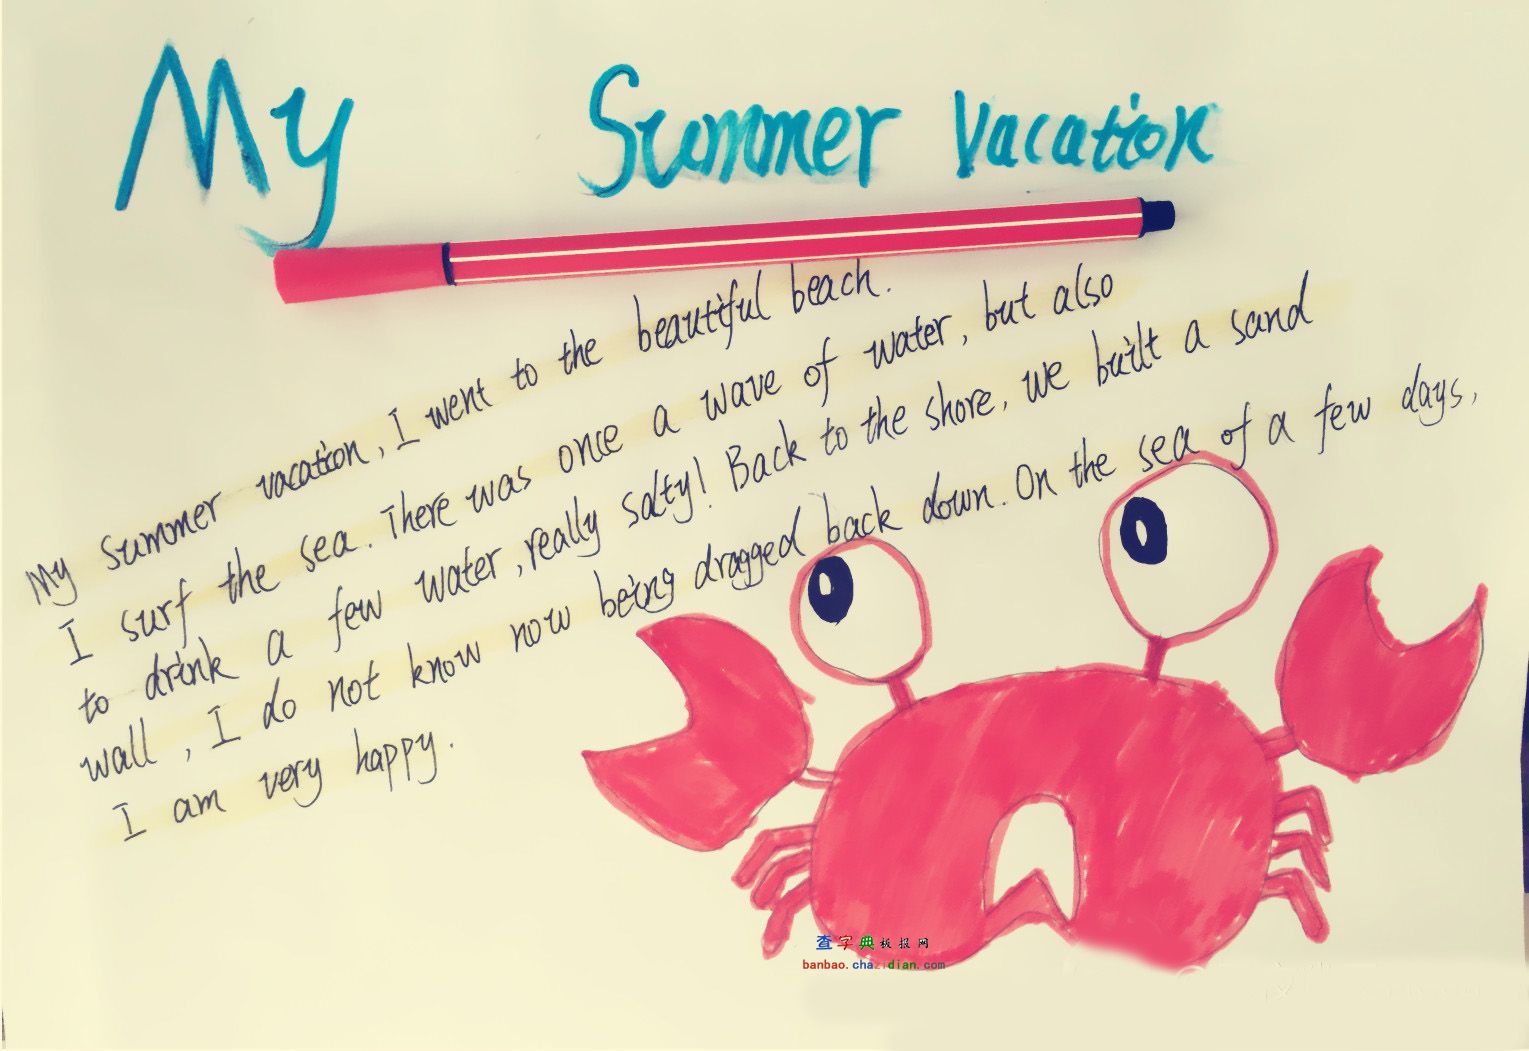 My Summer Vacation
My summer vacation, I went to the beautiful beach.
I surf the sea. There was once a wave of water, but also
to drink a few water, really salty! Back to the shore, we built a sand
wall, I do not know now being dragged back down. On the sea of a few days,
I am very happy.
查字典板报网
banbao.chazidian.com